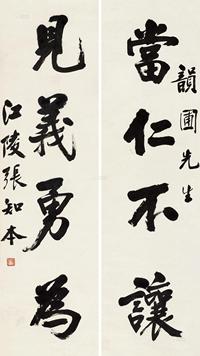 韻圃先生
當仁不讓
見義勇為
江陵張知本